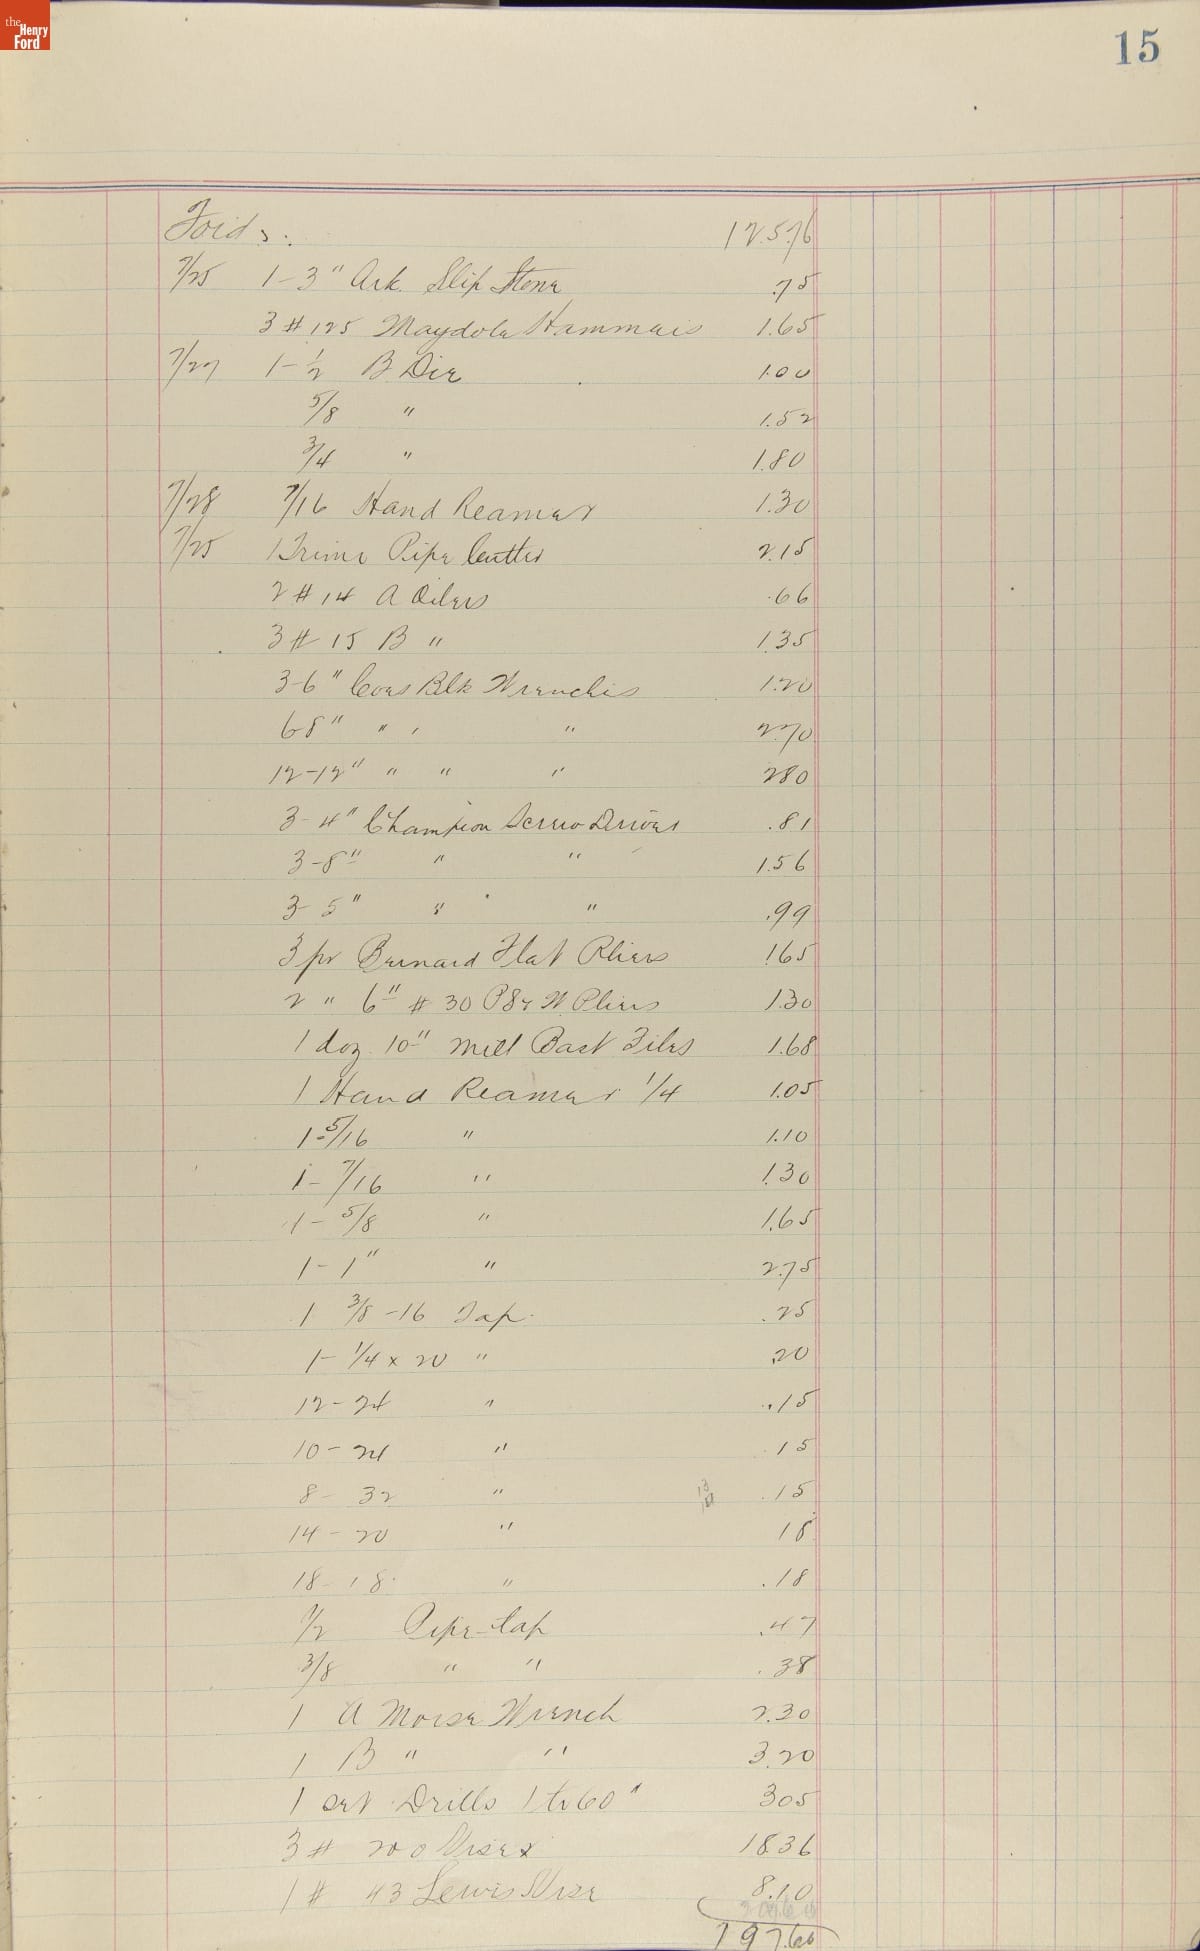 the Henry Ford
15
Ford's. 125.76
7/25 1-3" Ark. Slip Stone .75
3 # 125 Maydole Hammers 1.65
7/27 1-1/2 B Die 1.00
5/8 " 1.52
3/4 " 1.80
7/28 7/16 Hand Reamer 1.30
7/25 1 Trimo Pipe Cutter 2.15
2 # 14 A Oilers .66
3 # 15 B " 1.35
3-6" Coes Blk Wrenches 1.20
6-8" " " " 2.70
12-12" " " " 280
3-4" Champion Screw Driver .81
3-8" " " 1.56
3-5" " " .99
3 pr Bernard Flat Pliers 1.65
2 " 6" # 30 P S & W Pliers 1.30
1 doz. 10" Mill Bast Files 1.68
1 Hand Reamer 1/4 1.05
1-5/16 " 1.10
1-7/16 " 1.30
1-5/8 " 1.65
1-1" " 2.75
1 3/8-16 Tap .25
1-1/4 x 20 " .20
12-24 " .15
10-24 " 15
8-32 " .15
14-20 " 18
18-18 " .18
1/2 Pipe-tap .47
3/8 " " .38
1 A Morse Wrench 2.30
1 B " " 3.20
1 set Drills 1 to 60" 305
3 # 200 Vises 1836
1 # 43 Lewis Vise 8.10
197.60